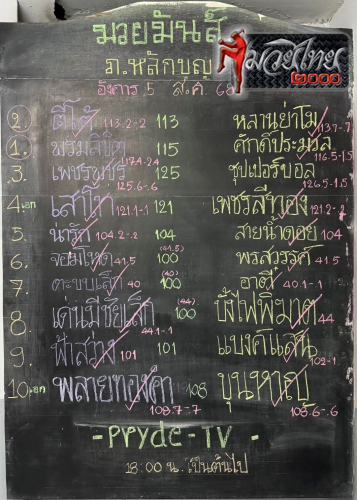 มวยมันส์
มวยไทย
๒๐๐๐
ภ.หลักบุญ
อังคาร 5 ส.ค. 68
2. 113.2-.2 113 หลานย่าโม 113.7-.7
1. พรมลิขิต 174-24 115 ศักดิ์ประมวล 116.5-1.5
3. เพชรเพชร 125.6-.6 125 ซุปเปอร์บอล 126.5-1.5
4.เอก เสาโท 121.1-.1 121 เพชรสีทอง 121.2-
5. นารัก 104.2-.2 104 สายน้ำดอย 104
6. จอมโหด 41.5 (41.5) 100 พรสวรรค์ 41.5
7. ตะขบเล็ก 40 (40) 100 อาตี๋ 40.1-.1
8. เด่นมีชัยเล็ก 44.1-.1 (44) 100 บั้งไฟพิฆาต 44
9. ฟ้าสว่าง 101 101 แบงค์แสน 102-1
10.เอก พลายทองคำ 108.7-.7 108 ขุนหาญ 108.6-.6
-PRYDE-TV -
18:00 น. เป็นต้นไป